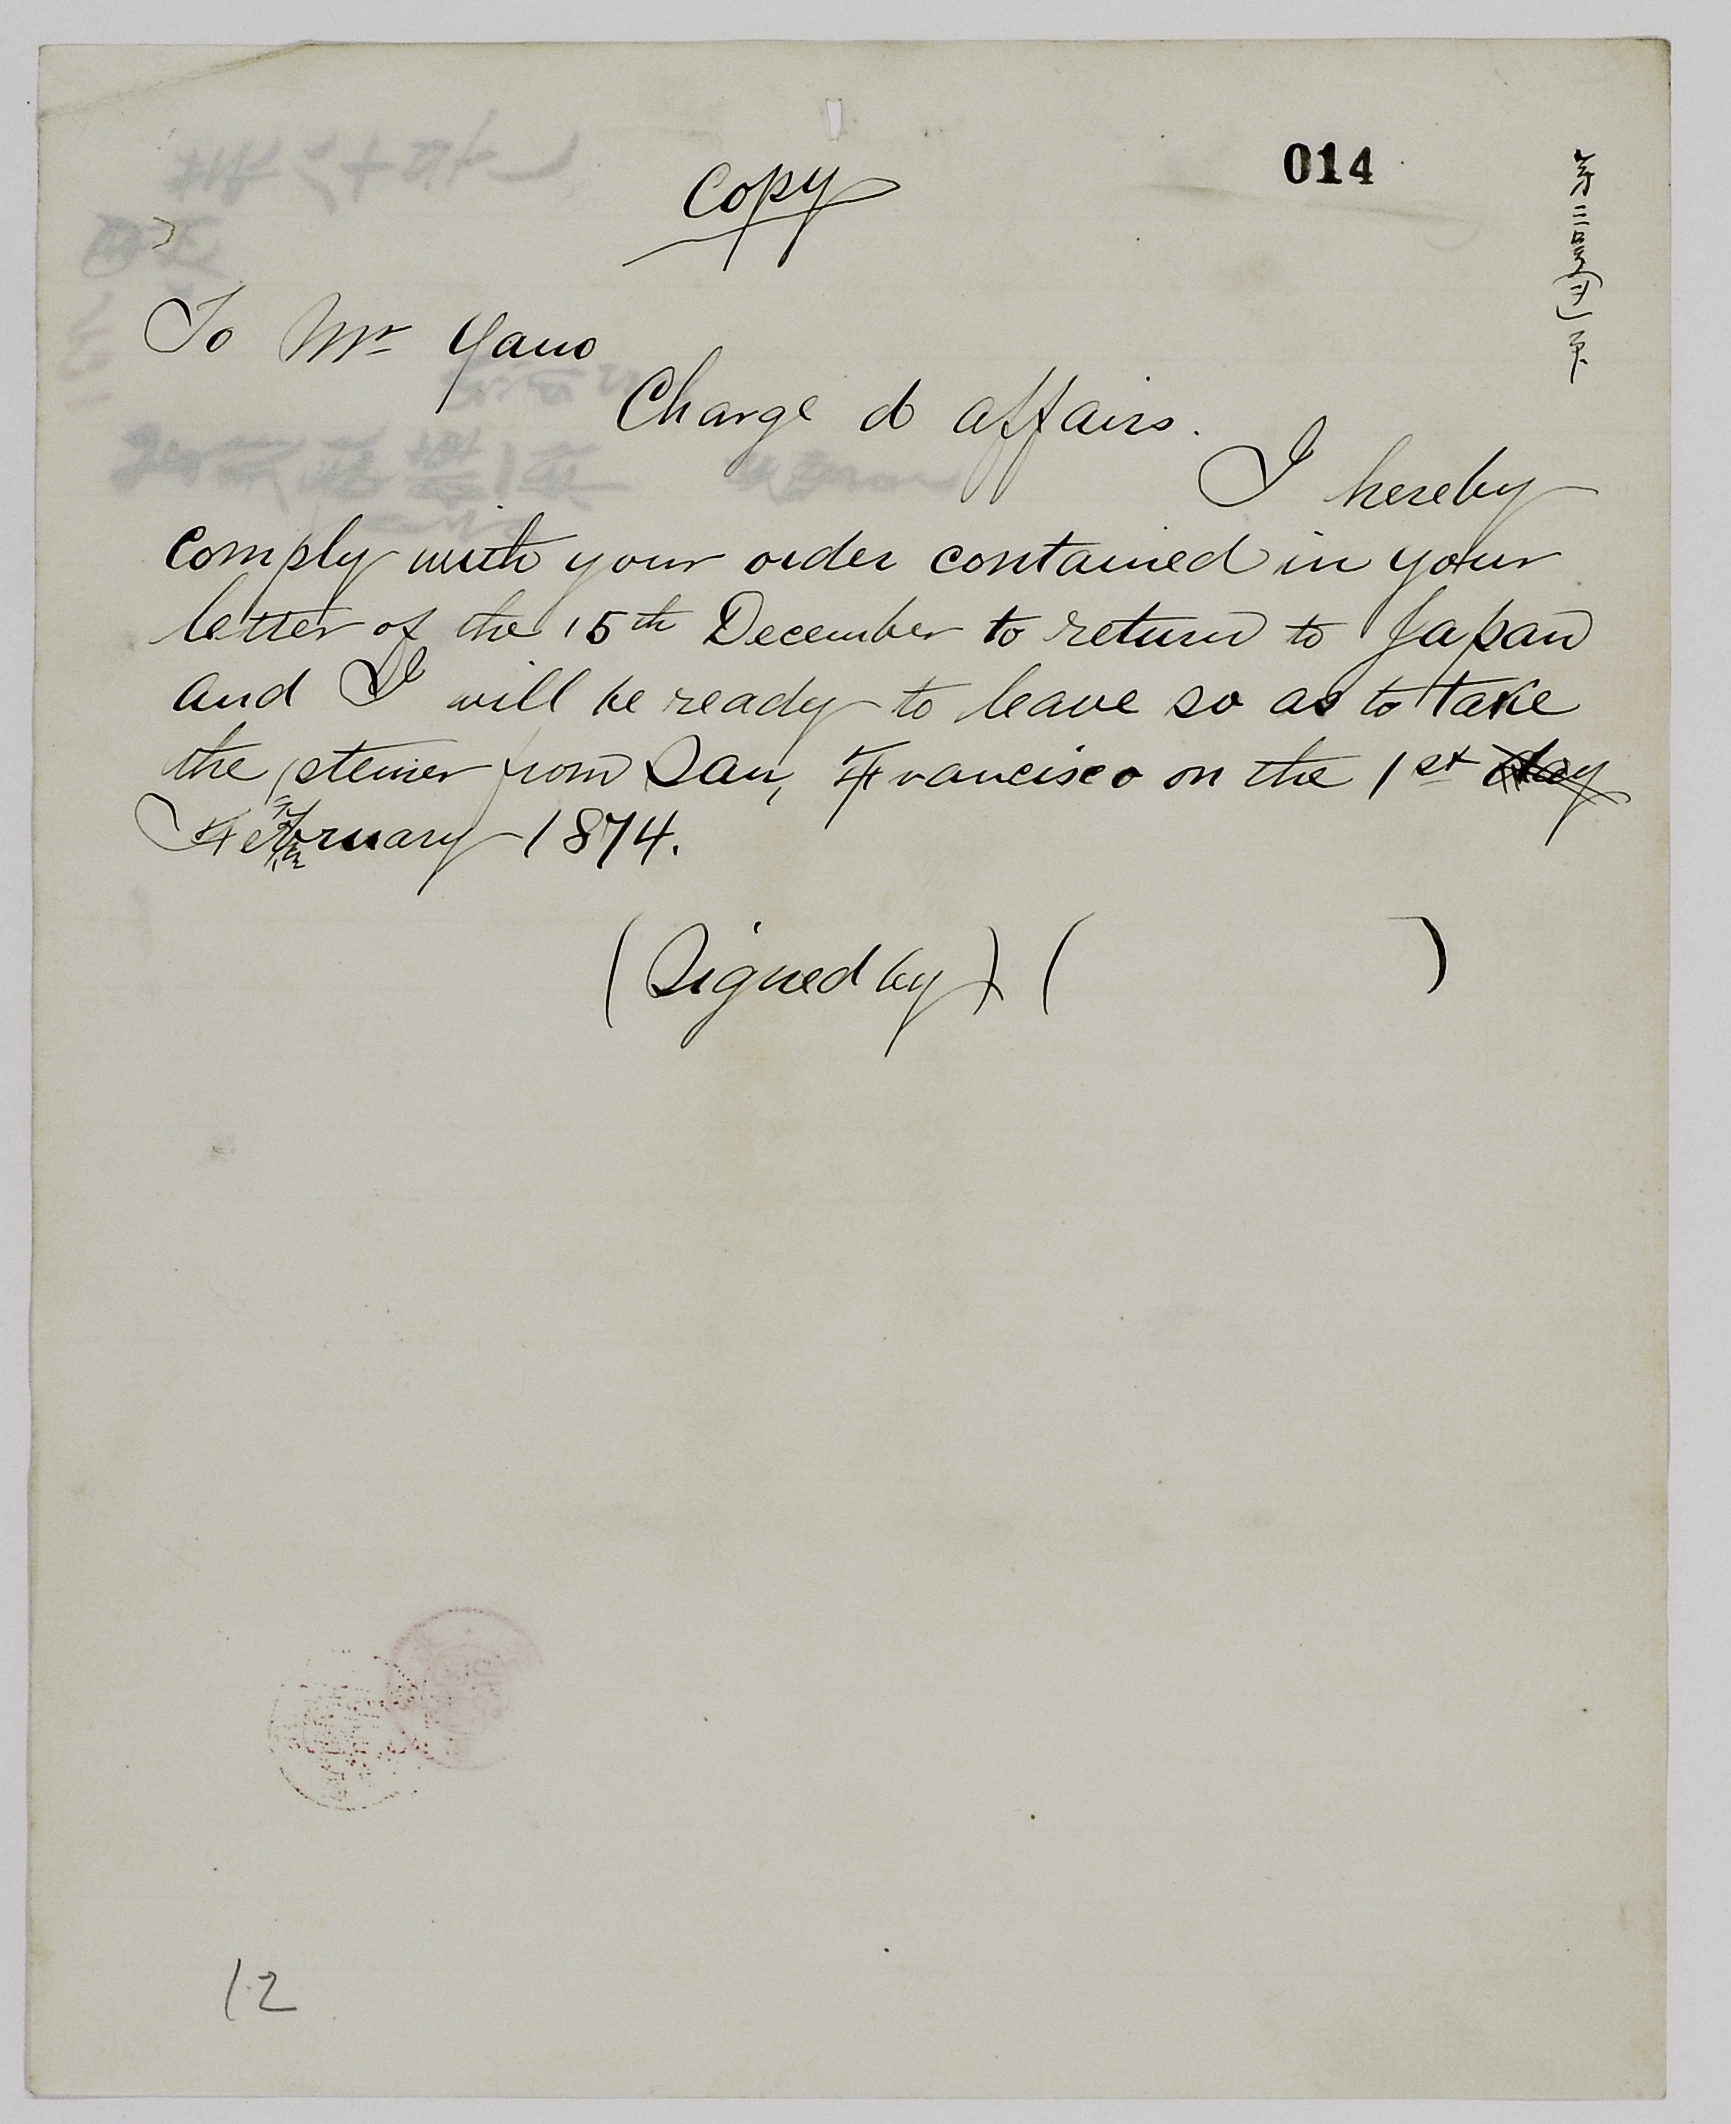 014
Copy
To Mr Yano
Charge d affairs.
I hereby
comply with your order contained in your
letter of the 15th December to return to Japan
and I will be ready to leave so as to take
the stemer from San, Francisco on the 1st
February 1874.
(Signed by) ( )
12